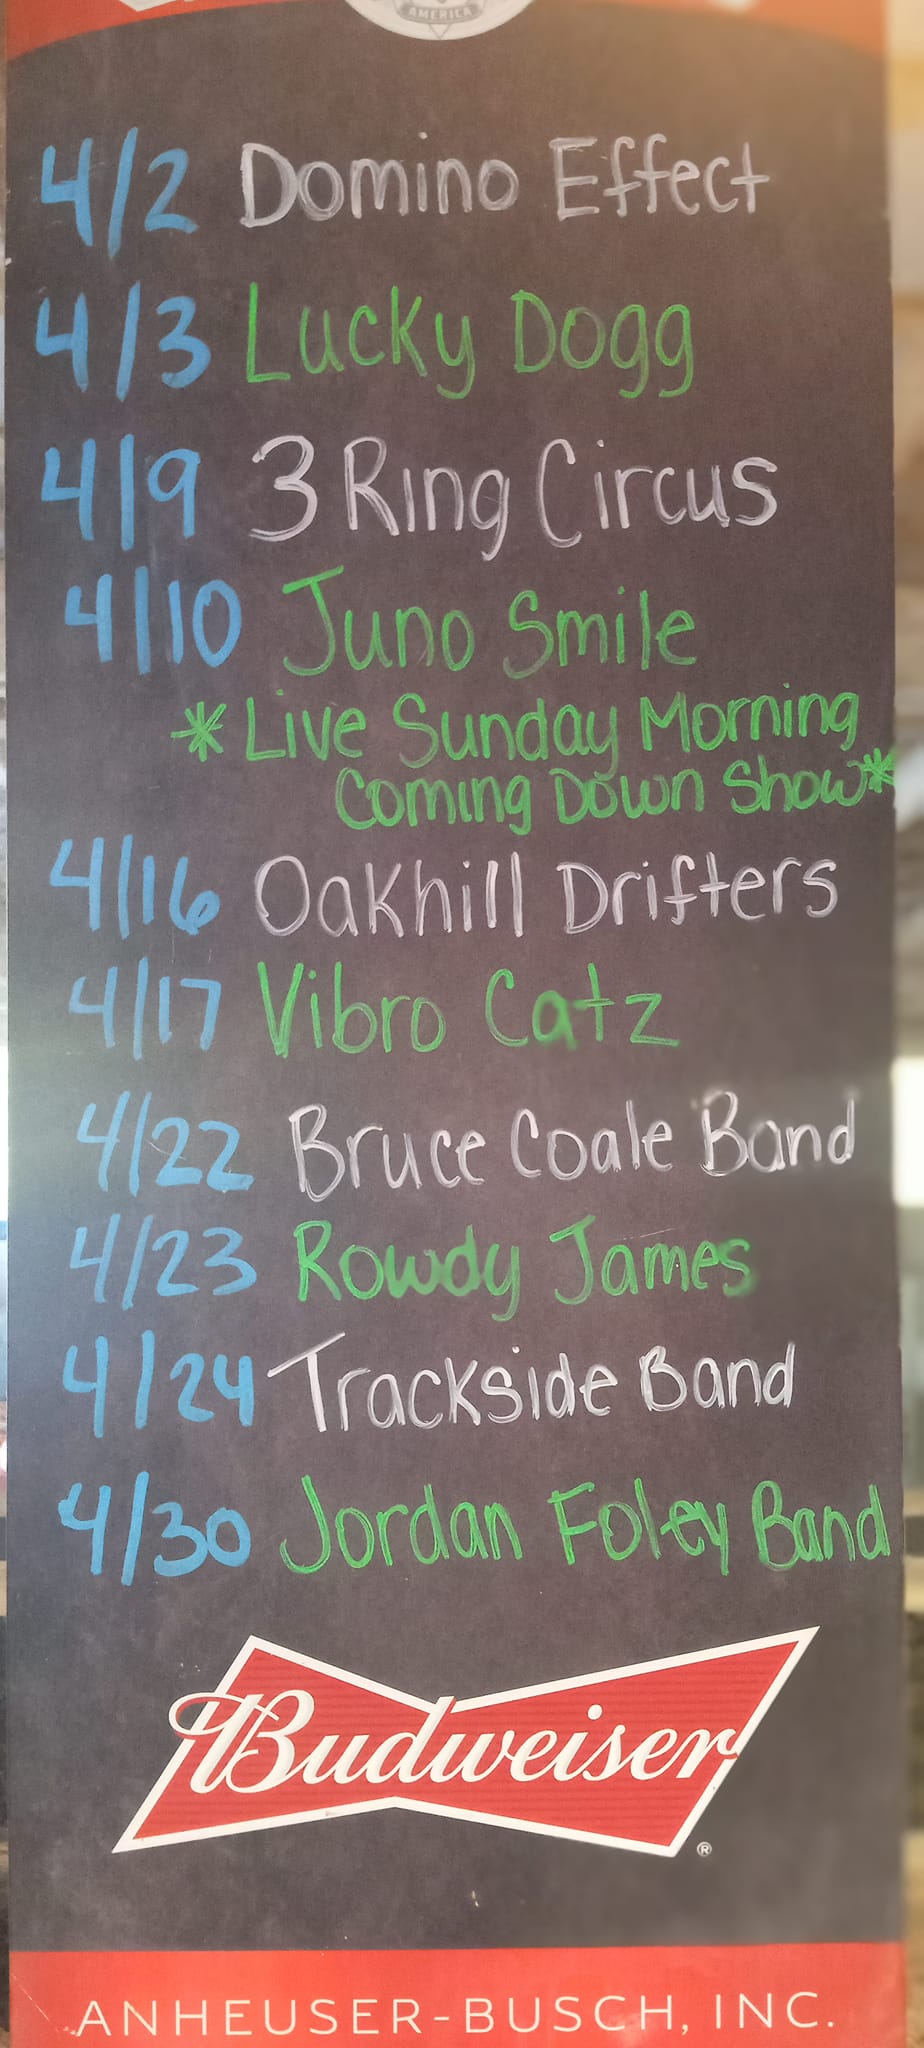 AMERICA
4/2 Domino Effect
4/3 Lucky Dogg
4/9 3 Ring Circus
4/10 Juno Smile
*Live Sunday Morning
Coming Down Show*
4/16 Oakhill Drifters
4/17 Vibro Catz
4/22 Bruce Coale Band
4/23 Rowdy James
4/24 Trackside Band
4/30 Jordan Foley Band
Budweiser
®
ANHEUSER-BUSCH, INC.